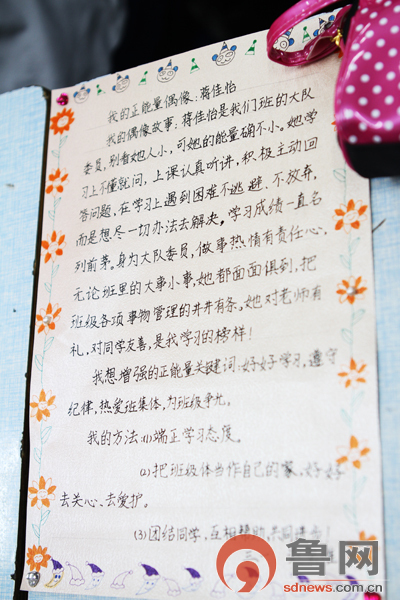 我的正能量偶像：蒋佳怡
我的偶像故事：蒋佳怡是我们班的大队
委员，别看她人小，可她的能量确不小。她学
习上不懂就问，上课认真听讲，积极主动回
答问题，在学习上遇到困难不逃避、不放弃，
而是想尽一切办法去解决。学习成绩一直名
列前茅。身为大队委员，做事热情有责任心，
无论班里的大事小事，她都面面俱到，把
班级各项事物管理的井井有条。她对老师有
礼，对同学友善，是我学习的榜样！
我想增强的正能量关键词：好好学习，遵守
纪律，热爱班集体，为班级争光。
我的方法：(1)端正学习态度。
(2)把班级体当作自己的家，好好
去关心、去爱护。
(3)团结同学，互相帮助，共同进步！
鲁网
sdnews.com.cn